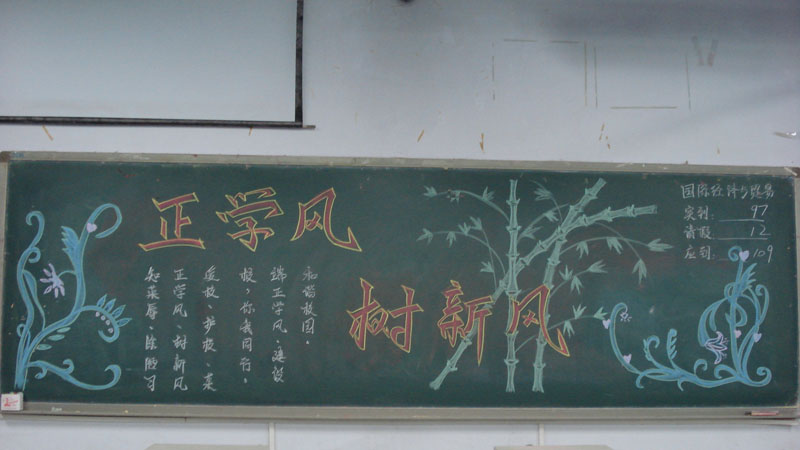 正学风
树新风
知荣辱、除陋习
正学风、树新风
爱校、护校、荣
校，你我同行。
端正学风、建设
和谐校园。
国际经济与贸易
实到: 97
请假: 12
应到: 109